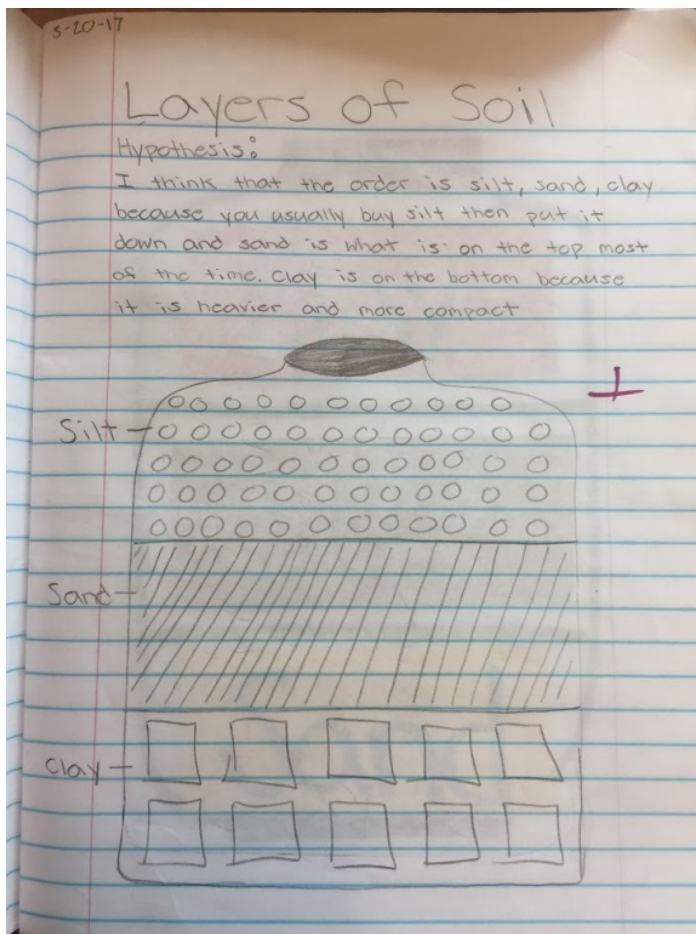 5-20-17
Layers of Soil
Hypothesis:
I think that the order is silt, sand, clay
because you usually buy silt then put it
down and sand is what is on the top most
of the time. Clay is on the bottom because
it is heavier and more compact
Silt
Sand
Clay